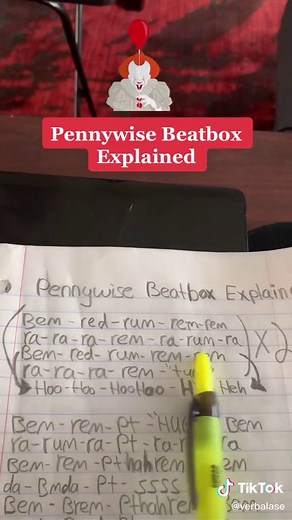 Pennywise Beatbox
Explained
Pennywise Beatbox Explain
Bem-red-rum-rem-rem
ra-ra-ra-rem-ra-rum-ra
Bem-red-rum-rem-rem
ra-ra-ra-rem-
X2
Hoo-Hoo-HooHoo- Heh
Bem-rem-Pt- Bem
ra-rum-ra-Pt-
Bem-rem-Pthahrem
da-Bmda-Pt-ssss
Bem-Brem-Pthahrem
TikTok
@verbalase